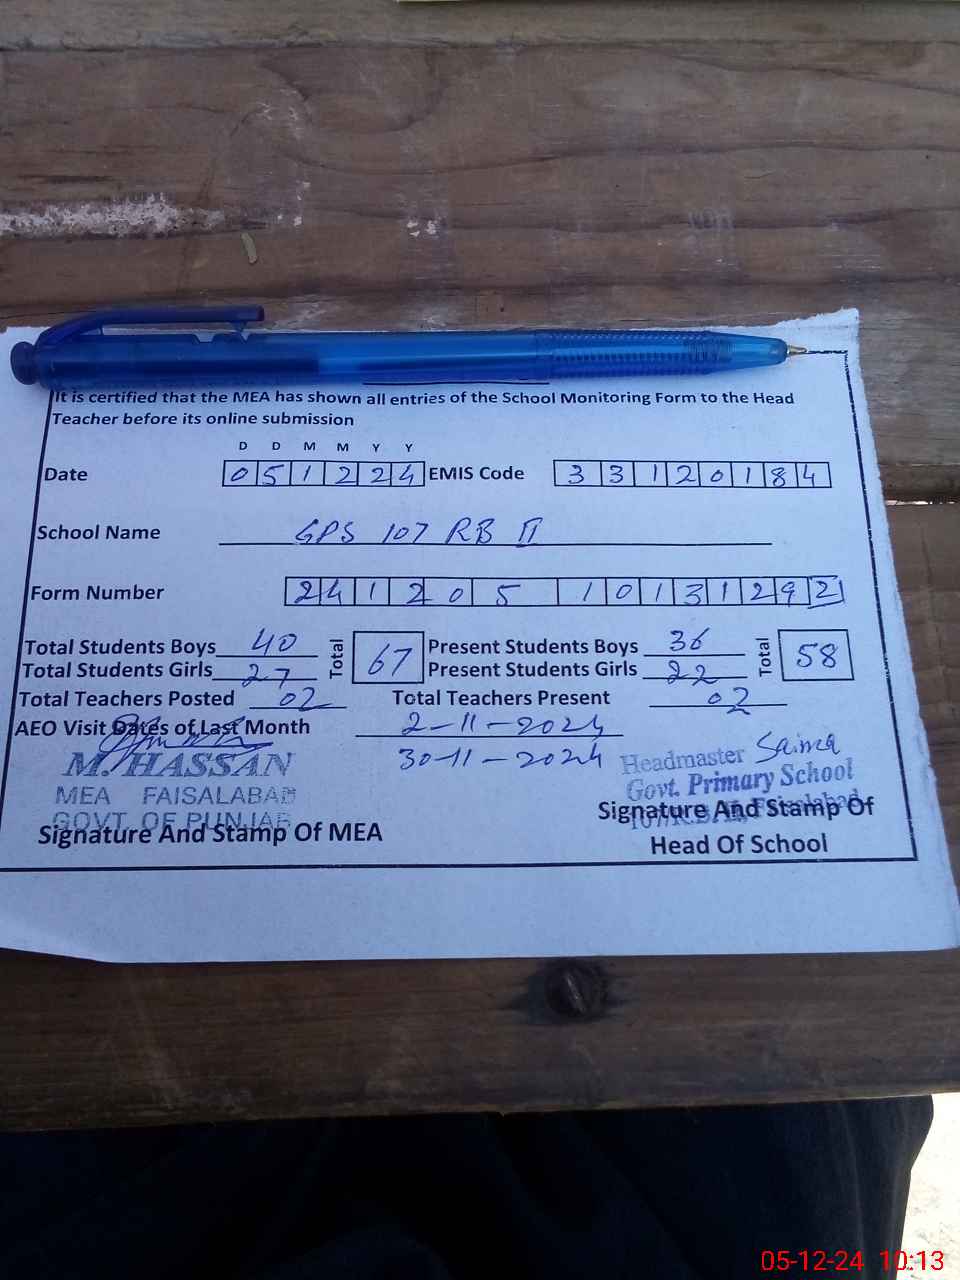 It is certified that the MEA has shown all entries of the School Monitoring Form to the Head
Teacher before its online submission
D D M M Y Y
Date 0 5 1 2 2 4 EMIS Code 3 3 1 2 0 1 8 4
School Name GPS 107 RB II
Form Number 2 4 1 2 0 5 1 0 1 3 1 2 9 2
Total Students Boys 40 Total 67 Present Students Boys 36 Total 58
Total Students Girls 27 Present Students Girls 22
Total Teachers Posted 02 Total Teachers Present 02
AEO Visit Dates of Last Month 2-11-2024
30-11-2024
M. HASSAN
MEA FAISALABAD
GOVT. OF PUNJAB
Signature And Stamp Of MEA
Headmaster Saima
Govt. Primary School
107/R.B. II, Faisalabad
Signature And Stamp Of
Head Of School
05-12-24 10:13